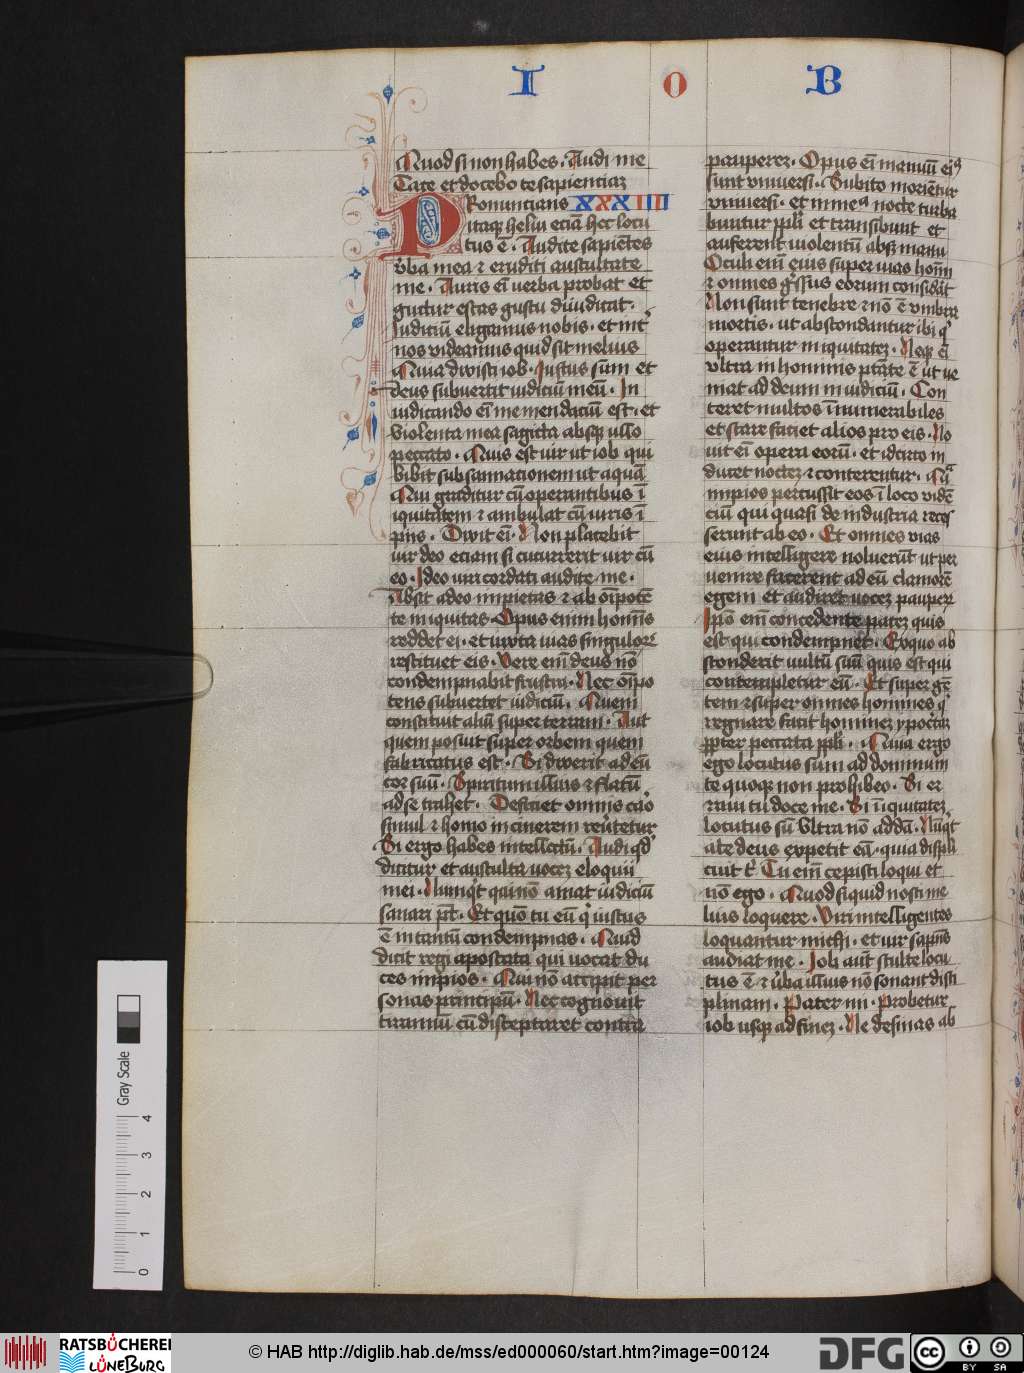 I O B
Quod si non habes. Audi me
Tace et docebo te sapienciaz
PRonuncians XXXIIII
itaqꝫ heliu eciā hec locu
tus ē. Audite sapiētes
v̓ba mea ⁊ eruditi auscultate
me. Auris eī verba probat et
guttur escas gustu diiudicat.
Judiciū eligamus nobis. et int̓
nos videamus quid sit melius
Quia dixit iob. Justus sum et
deus subvertit iudiciū meū. In
iudicando eī me mendaciū est. et
violenta mea sagitta absqꝫ ullo
peccato. Quis est vir ut iob qui
bibit subsannationem ut aquā
Qui graditur cū operantibus ī
iquitatem ⁊ ambulat cū viris ī
piis. Dixit eī. Non placebit
vir deo eciam si cucurrerit vir cū
eo. Ideo viri cordati audite me.
Absit a deo impietas ⁊ ab oīpotē
te iniquitas. Opus enim homīs
reddet ei. et iuxta vias singuloꝝ
restituet eis. Vere eīm deus nō
condempnabit frustra. Nec oīpo
tens subvertet iudiciū. Quem
constituit aliū super terram. Aut
quem posuit super orbem quem
fabricatus est. Si direxerit ad eū
cor suū. Spiritum illius ⁊ flatū
ad se trahet. Deficiet omnis caro
simul ⁊ homo in cinerem rev̓tetur
Si ergo habes intellectū. Audi qd̓
dicitur et ausculta vocez eloquii
mei. Numqͥt qui nō amat iudiciū
sanari pt̄. Et quō tu eū qͥ iustus
ē in tantū condempnas. Quid
dicit regi apostata qui vocat du
ces impios. Qui nō accipit per
sonas principū. Nec cognovit
tirannū cū disceptaret contra
pauperez. Opus eī manuū eiꝰ
sunt universi. Subito moriētur
universi. et in meᵃ nocte turba
buntur ppl̓i et transibunt et
auferent violentū absqꝫ manu
Oculi enī eius super vias homīn
⁊ omnes gᵉssus eorum considāt
Non sunt tenebre ⁊ nō ē umbra
mortis. ut abscondantur ibi qͥ
operantur iniquitatez. Neqꝫ eī
ultra in hominis ptāte ē ut ve
niat ad deum in iudiciū. Con
teret multos īnumerabiles
et stare faciet alios pro eis. No
vit eī opera eorū. et idcirco in
ducet noctez ⁊ conterentur. Qᵃ
impios percussit eos ī loco vidē
ciū qui quasi de industria reces
serunt ab eo. Et omnes vias
eius intelligere noluerūt ut per
venire facerent ad eū clamorē
egeni et audiret vocez pauperū
Ip̄o enī concedente pacez quis
est qui condempnet. Ex quo ab
sconderit vultū suū quis est qui
contempletur eū. Et super gē
tem ⁊ super omnes homines qͥ
regnare facit hominez ypocritaz
ꝓpter peccata ppl̓i. Quia ergo
ego locutus sum ad dominum
te quoqꝫ non prohibeo. Si er
ravi tu doce me. Si īiquitatez
locutus sū Ultra nō addā. Nūqͥt
a te deus expetit eā. quia displi
cuit t̓. Tu enī cepisti loqui et
nō ego. Quod si quid nosti me
lius loquere. Viri intelligentes
loquantur michi. et vir sapiēs
audiat me. Job aūt stulte locu
tus ē ⁊ v̓ba illius nō sonant disci
plinam. Pater mi. Probetur
iob usqꝫ ad finez. Ne desinas ab
Gray Scale
4
3
2
1
0
RATSBÜCHEREI
LÜNEBURG
© HAB http://diglib.hab.de/mss/ed000060/start.htm?image=00124
DFG
cc
BY SA